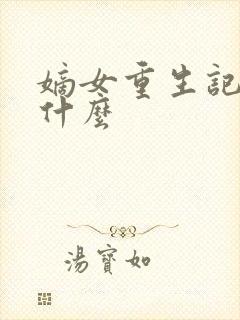 嫡女重生記
什麼
湯寶如